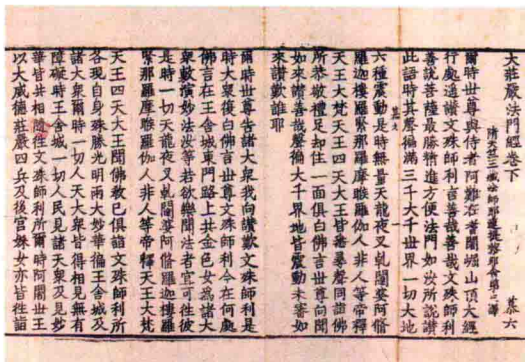 大莊嚴法門經卷下　恭六
隋天竺三藏法師那連提耶舍第二譯
爾時世尊與侍者阿難在耆闍崛山頂大經
行處遙讚文殊師利言善哉善哉文殊師利
善說菩薩最勝精進方便法門如汝所說讚
此語時其聲徧滿三千大千世界一切大地
六種震動是時無量天龍夜叉乾闥婆阿脩
羅迦樓羅緊那羅摩睺羅伽人非人等帝釋
天王大梵天王四天大王皆尋聲同詣佛
所恭敬禮足却住一面俱白佛言世尊向聞
如來讚善哉聲徧大千界地皆震動未審如
來讚歎誰耶
爾時世尊告諸大衆我向讚歎文殊師利是
時大衆復白佛言世尊文殊師利今在何處
佛言在王舍城東門路上共金色女為諸大
衆敷演妙法汝等若欲樂聞法者宜可往彼
是時一切天龍夜叉乾闥婆阿脩羅迦樓羅
緊那羅摩睺羅伽人非人等帝釋天王大梵
天王四天大王聞佛教已俱詣文殊師利所
各現自身殊勝光明雨大妙華徧王舍城及
諸大衆爾時一切人天大衆皆得相見無有
障礙時王舍城一切人民見諸天衆及見妙
華皆共相隨往文殊師利所爾時阿闍世王
以大威德莊嚴四兵及後宮婇女亦皆往詣